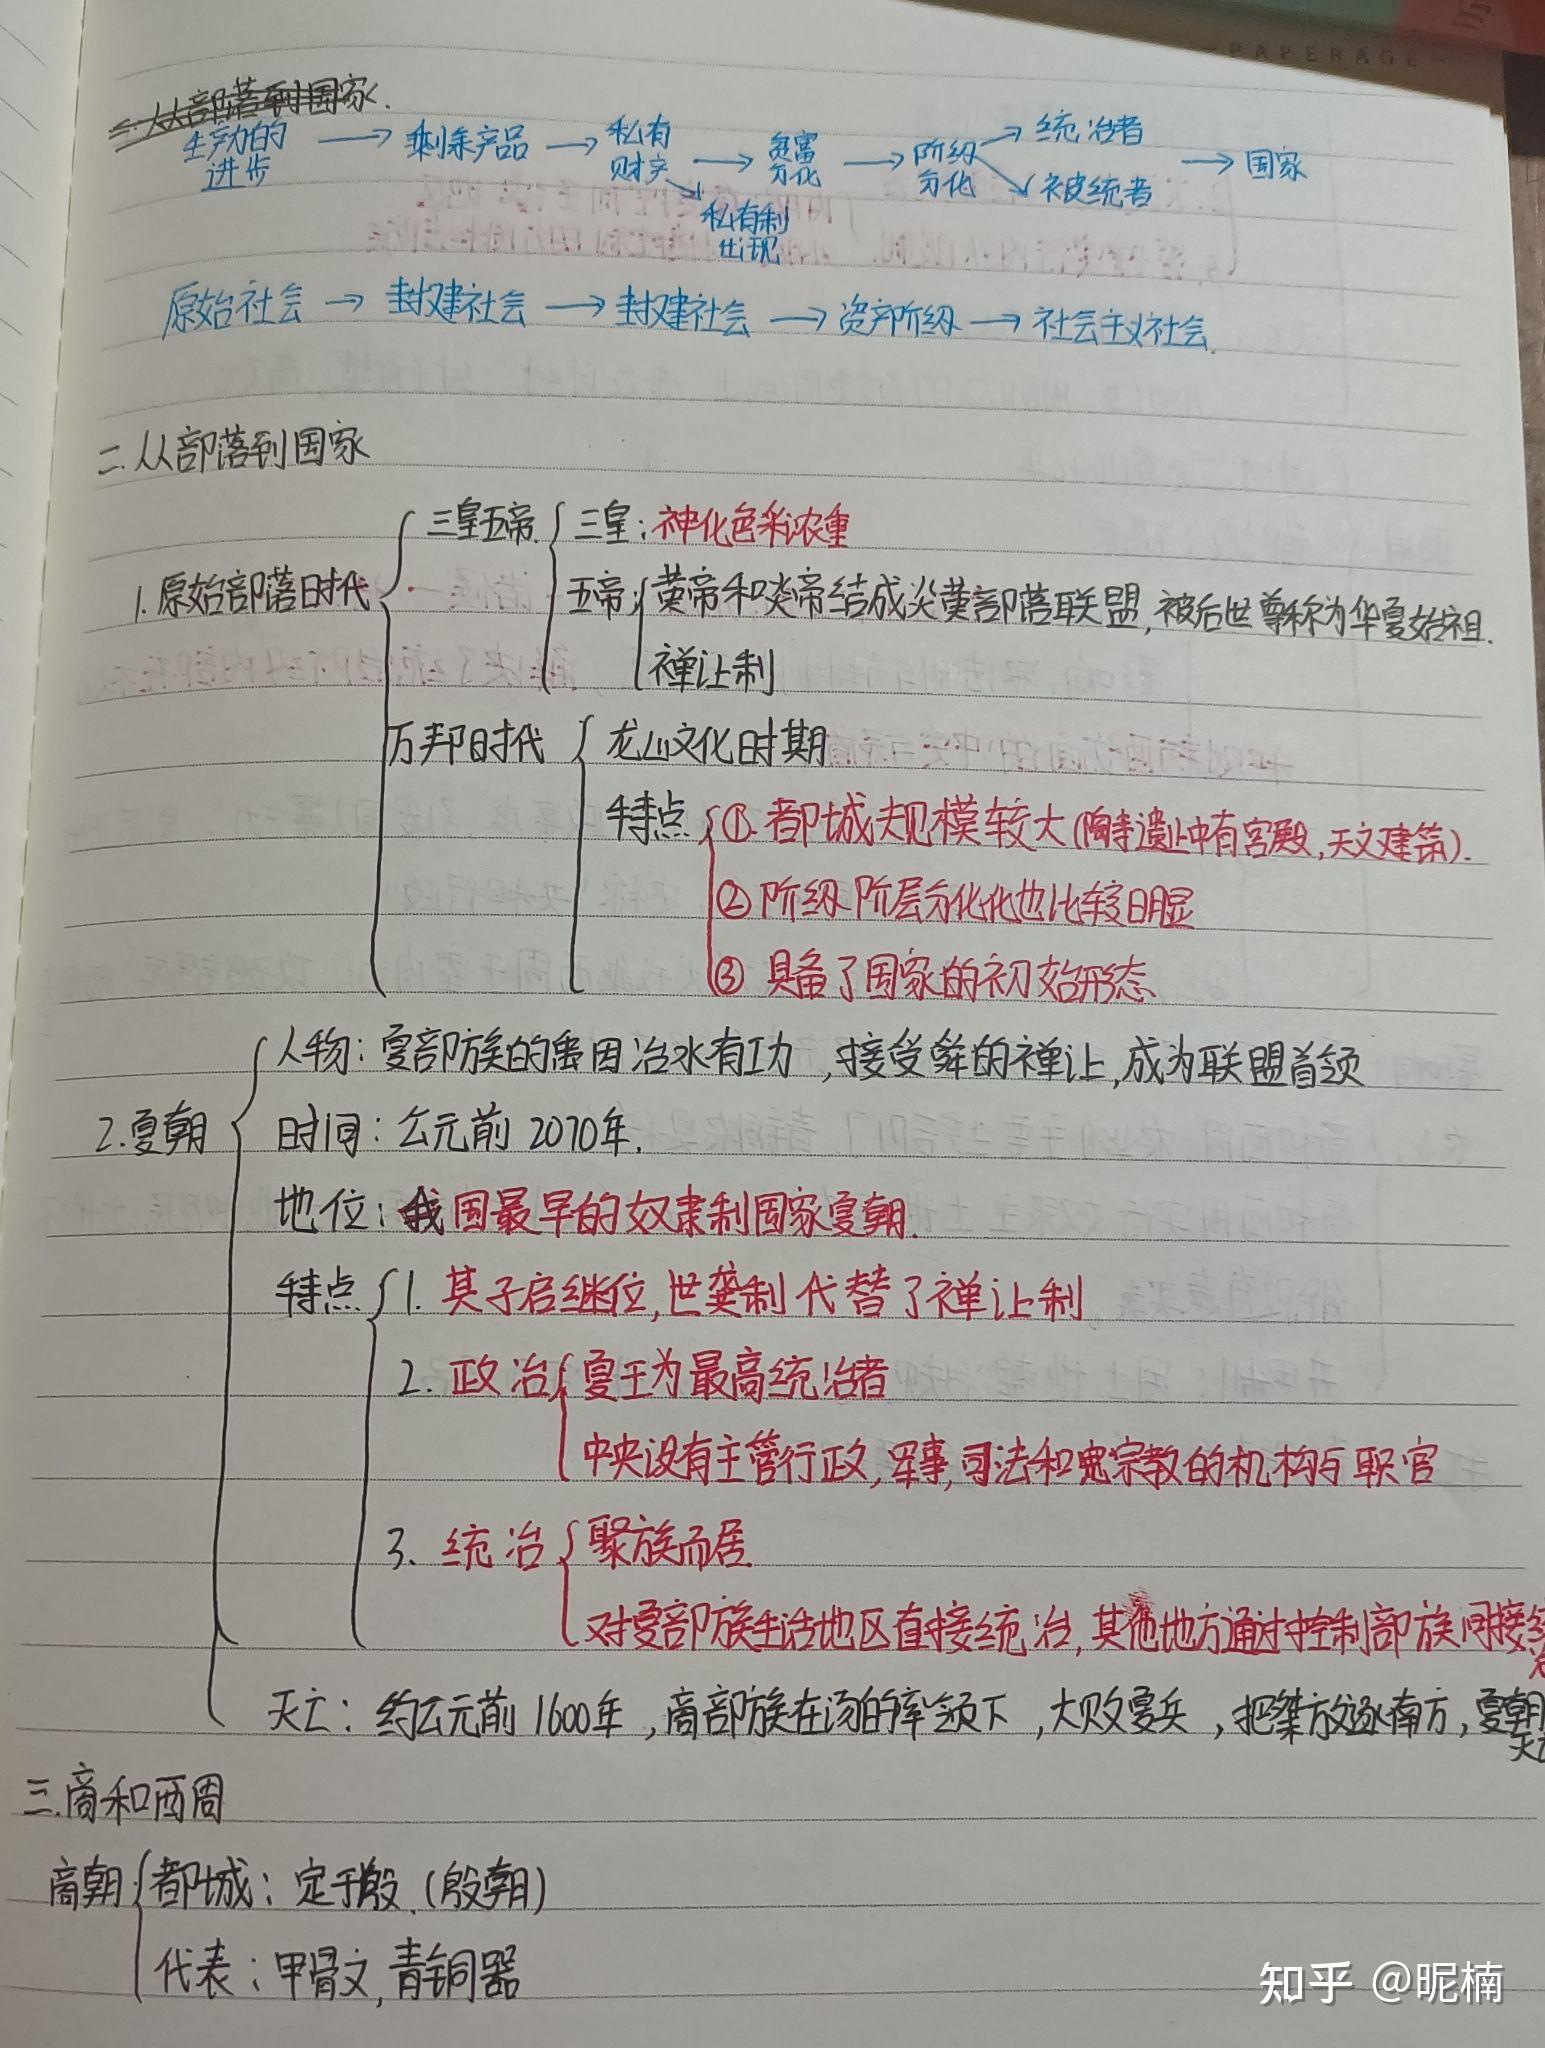 PAPERAGE
二.从部落到国家.
生产力的进步 → 剩余产品 → 私有财产 → 贫富分化 → 阶级分化 → 统治者 → 国家
被统者
私有制出现
原始社会 → 封建社会 → 封建社会 → 资产阶级 → 社会主义社会.
二.从部落到国家
三皇五帝. 三皇: 神化色彩浓重
1.原始部落时代 五帝: 黄帝和炎帝结成炎黄部落联盟,被后世尊称为华夏始祖.
禅让制
万邦时代 龙山文化时期
特点 ①.都城规模较大(陶寺遗址中有宫殿,天文建筑).
②阶级阶层分化化也比较明显
③具备了国家的初始形态
人物: 夏部族的禹因治水有功,接受舜的禅让,成为联盟首领
2.夏朝 时间: 公元前2070年.
地位: 我国最早的奴隶制国家夏朝.
特点 1. 其子启继位,世袭制代替了禅让制
2. 政治 夏王为最高统治者
中央设有主管行政,军事,司法和宗教的机构与职官
3. 统治 聚族而居
对夏部族生活地区直接统治,其他地方通过控制部族间接统
灭亡: 约公元前1600年,商部族在汤的率领下,大败夏兵,把桀放逐南方,夏朝灭亡
三.商和西周
商朝 都城: 定于殷.(殷朝)
代表: 甲骨文,青铜器
知乎 @昵楠